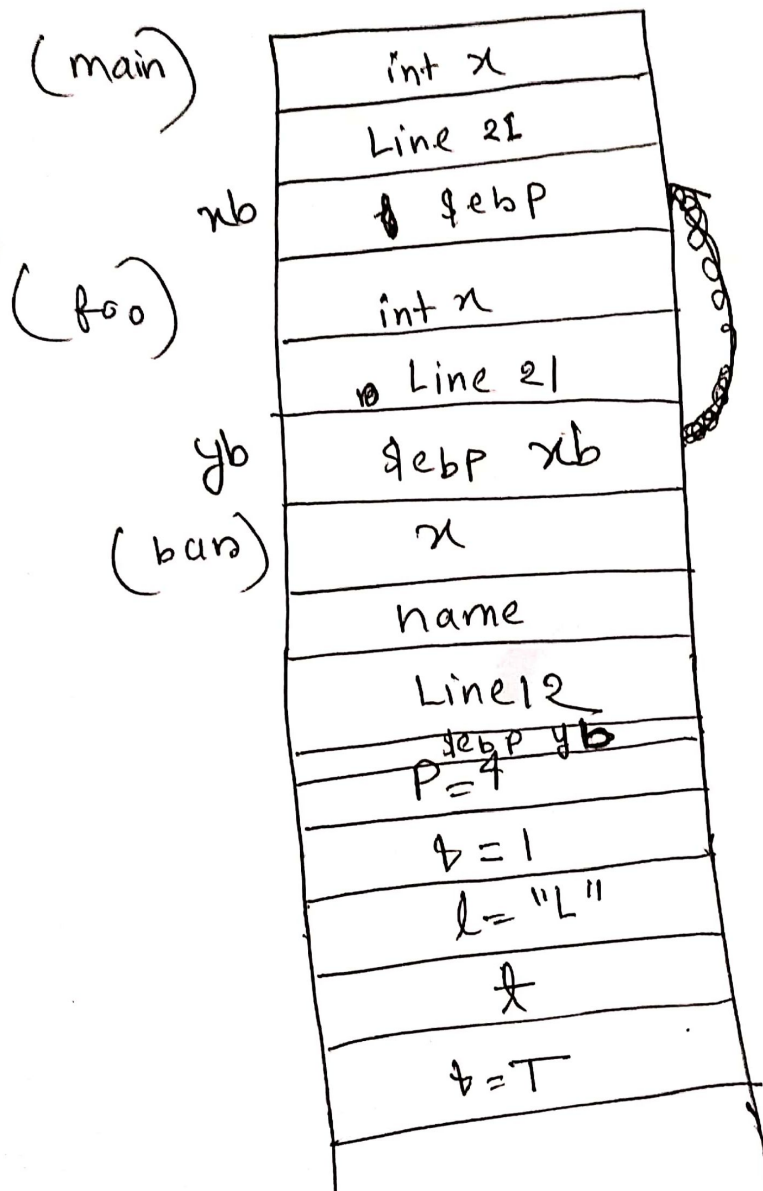 (main)
int x
Line 21
xb
$ebp
(foo)
int x
Line 21
yb
$ebp xb
(bar)
x
name
Line 12
$ebp yb
P=4
q=1
l="L"
t
t=T